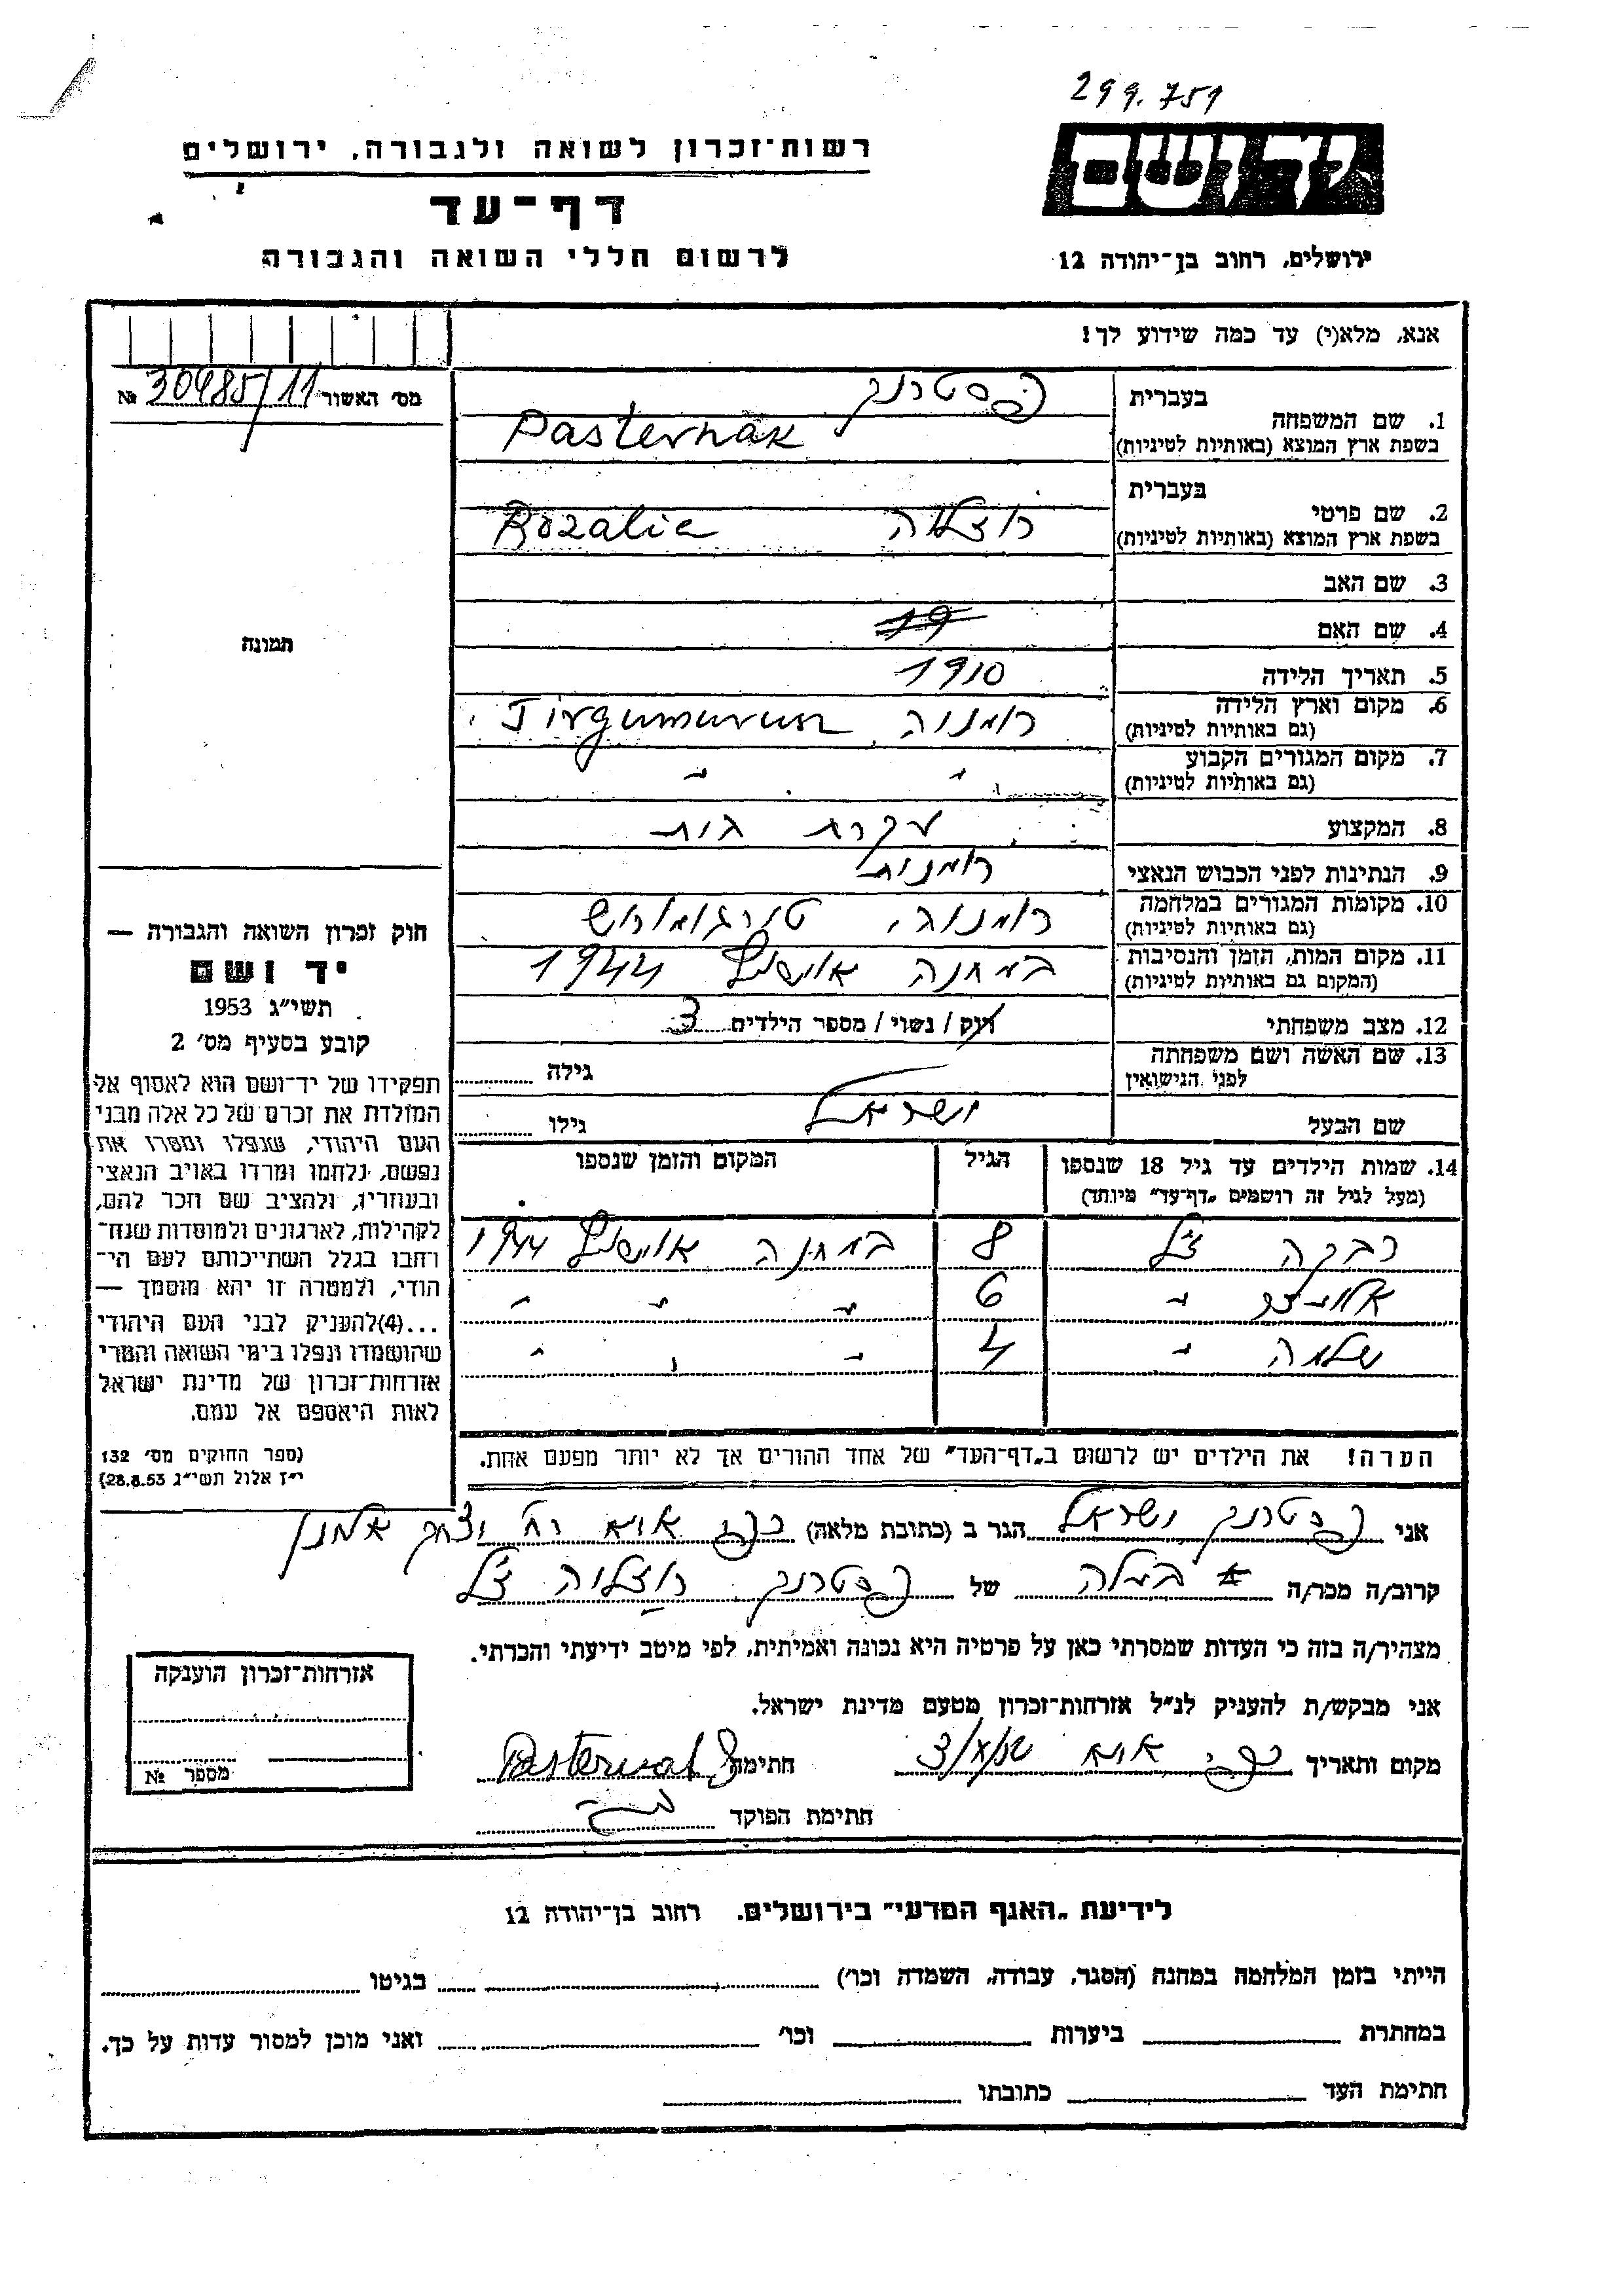 299.751
יד ושם
רשות־זכרון לשואה ולגבורה, ירושלים
דף־עד
לרשום חללי השואה והגבורה
ירושלים, רחוב בן־יהודה 12
אנא, מלא(י) עד כמה שידוע לך!
מס׳ האשור 30485/11 №
בעברית פסטרנק
1. שם המשפחה
בשפת ארץ המוצא (באותיות לטיניות) Pasternak
בעברית
2. שם פרטי רוזליה Rozalia
בשפת ארץ המוצא (באותיות לטיניות)
3. שם האב
4. שם האם 19
5. תאריך הלידה 1910
6. מקום וארץ הלידה רומניה, Tirgumurus
(גם באותיות לטיניות)
7. מקום המגורים הקבוע " "
(גם באותיות לטיניות)
8. המקצוע עקרת בית
9. הנתינות לפני הכבוש הנאצי רומנית
10. מקומות המגורים במלחמה רומניה, טירגומורוש
(גם באותיות לטיניות)
11. מקום המות, הזמן והנסיבות במחנה אושויץ 1944
(המקום גם באותיות לטיניות)
12. מצב משפחתי רווק / נשוי / מספר הילדים 3
13. שם האשה ושם משפחתה
לפני הנישואין גילה
שם הבעל ישראל גילו
14. שמות הילדים עד גיל 18 שנספו הגיל המקום והזמן שנספו
(מעל לגיל זה רושמים „דף־עד" מיוחד)
רבקה ז"ל 8 במחנה אושויץ 1944
" 6 " " "
שלמה " 4 " " "
הערה! את הילדים יש לרשום ב„דף־העד" של אחד ההורים אך לא יותר מפעם אחת.
תמונה
חוק זכרון השואה והגבורה —
יד ושם
תשי"ג 1953
קובע בסעיף מס׳ 2
תפקידו של יד־ושם הוא לאסוף אל
המולדת את זכרם של כל אלה מבני
העם היהודי, שנפלו ומסרו את
נפשם, נלחמו ומרדו באויב הנאצי
ובעוזריו, ולהציב שם וזכר להם,
לקהילות, לארגונים ולמוסדות שנח־
רחבו בגלל השתייכותם לעם הי־
הודי, ולמטרה זו יהא מוסמך —
...(4)להעניק לבני העם היהודי
שהושמדו ונפלו בימי השואה והמרי
אזרחות־זכרון של מדינת ישראל
לאות היאספם אל עמם.
(ספר החוקים מס׳ 132
י"ז אלול תשי"ג 28.8.53)
אני פסטרנק ישראל הגר ב (כתובת מלאה) רח׳ יצחק
קרוב/ה מכר/ה בעלה של פסטרנק רוזליה ז"ל
מצהיר/ה בזה כי העדות שמסרתי כאן על פרטיה היא נכונה ואמיתית, לפי מיטב ידיעתי והכרתי.
אני מבקש/ת להעניק לנ"ל אזרחות־זכרון מטעם מדינת ישראל.
מקום ותאריך חתימה Pasternak
חתימת הפוקד
אזרחות־זכרון הוענקה
מספר №
לידיעת „האגף המדעי" בירושלים. רחוב בן־יהודה 12
הייתי בזמן המלחמה במחנה (הסגר, עבודה, השמדה וכו׳) בגיטו
במחתרת ביערות וכו׳ ואני מוכן למסור עדות על כך.
חתימת העד כתובתו